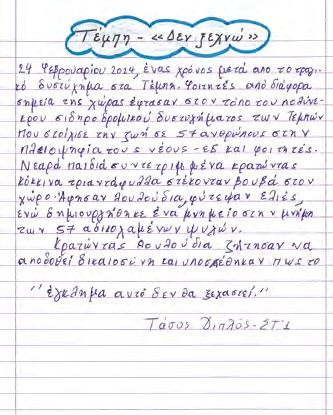 Τέμπη - «Δεν ξεχνώ»
24 Φεβρουαρίου 2024, ένας χρόνος μετά από το τραγι
κό δυστύχημα στα Τέμπη. Φοιτητές από διάφορα
σημεία της χώρας έφτασαν στον τόπο του πολύνε-
κρου σιδηροδρομικού δυστυχήματος των Τεμπών
που στοίχισε την ζωή σε 57 ανθρώπους στην
πλειοψηφία τους νέους-ες και φοιτητές.
Νεαρά παιδιά συντετριμμένα κρατώντας
κόκκινα τριαντάφυλλα στέκονταν βουβά στον
χώρο. Άφησαν λουλούδια, φύτεψαν ελιές,
ενώ δημιουργήθηκε ένα μνημείο στην μνήμη
των 57 αδικοχαμένων ψυχών.
Κρατώντας λουλούδια ζήτησαν να
αποδοθεί δικαιοσύνη και υποσχέθηκαν πως το
"έγκλημα αυτό δεν θα ξεχαστεί."
Τάσος Διπλός-ΣΤ'1